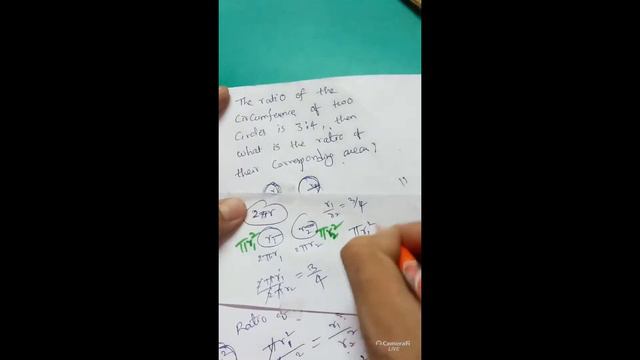 The ratio of the
Circumference of two
Circles is 3:4, then
what is the ratio of
their corresponding areas?
r1 r2
2πr
r1/r2 = 3/4
πr1² r1 r2 πr2² πr1²
2πr1 2πr2
2πr1/2πr2 = 3/4
Ratio of
CameraFi
LIVE